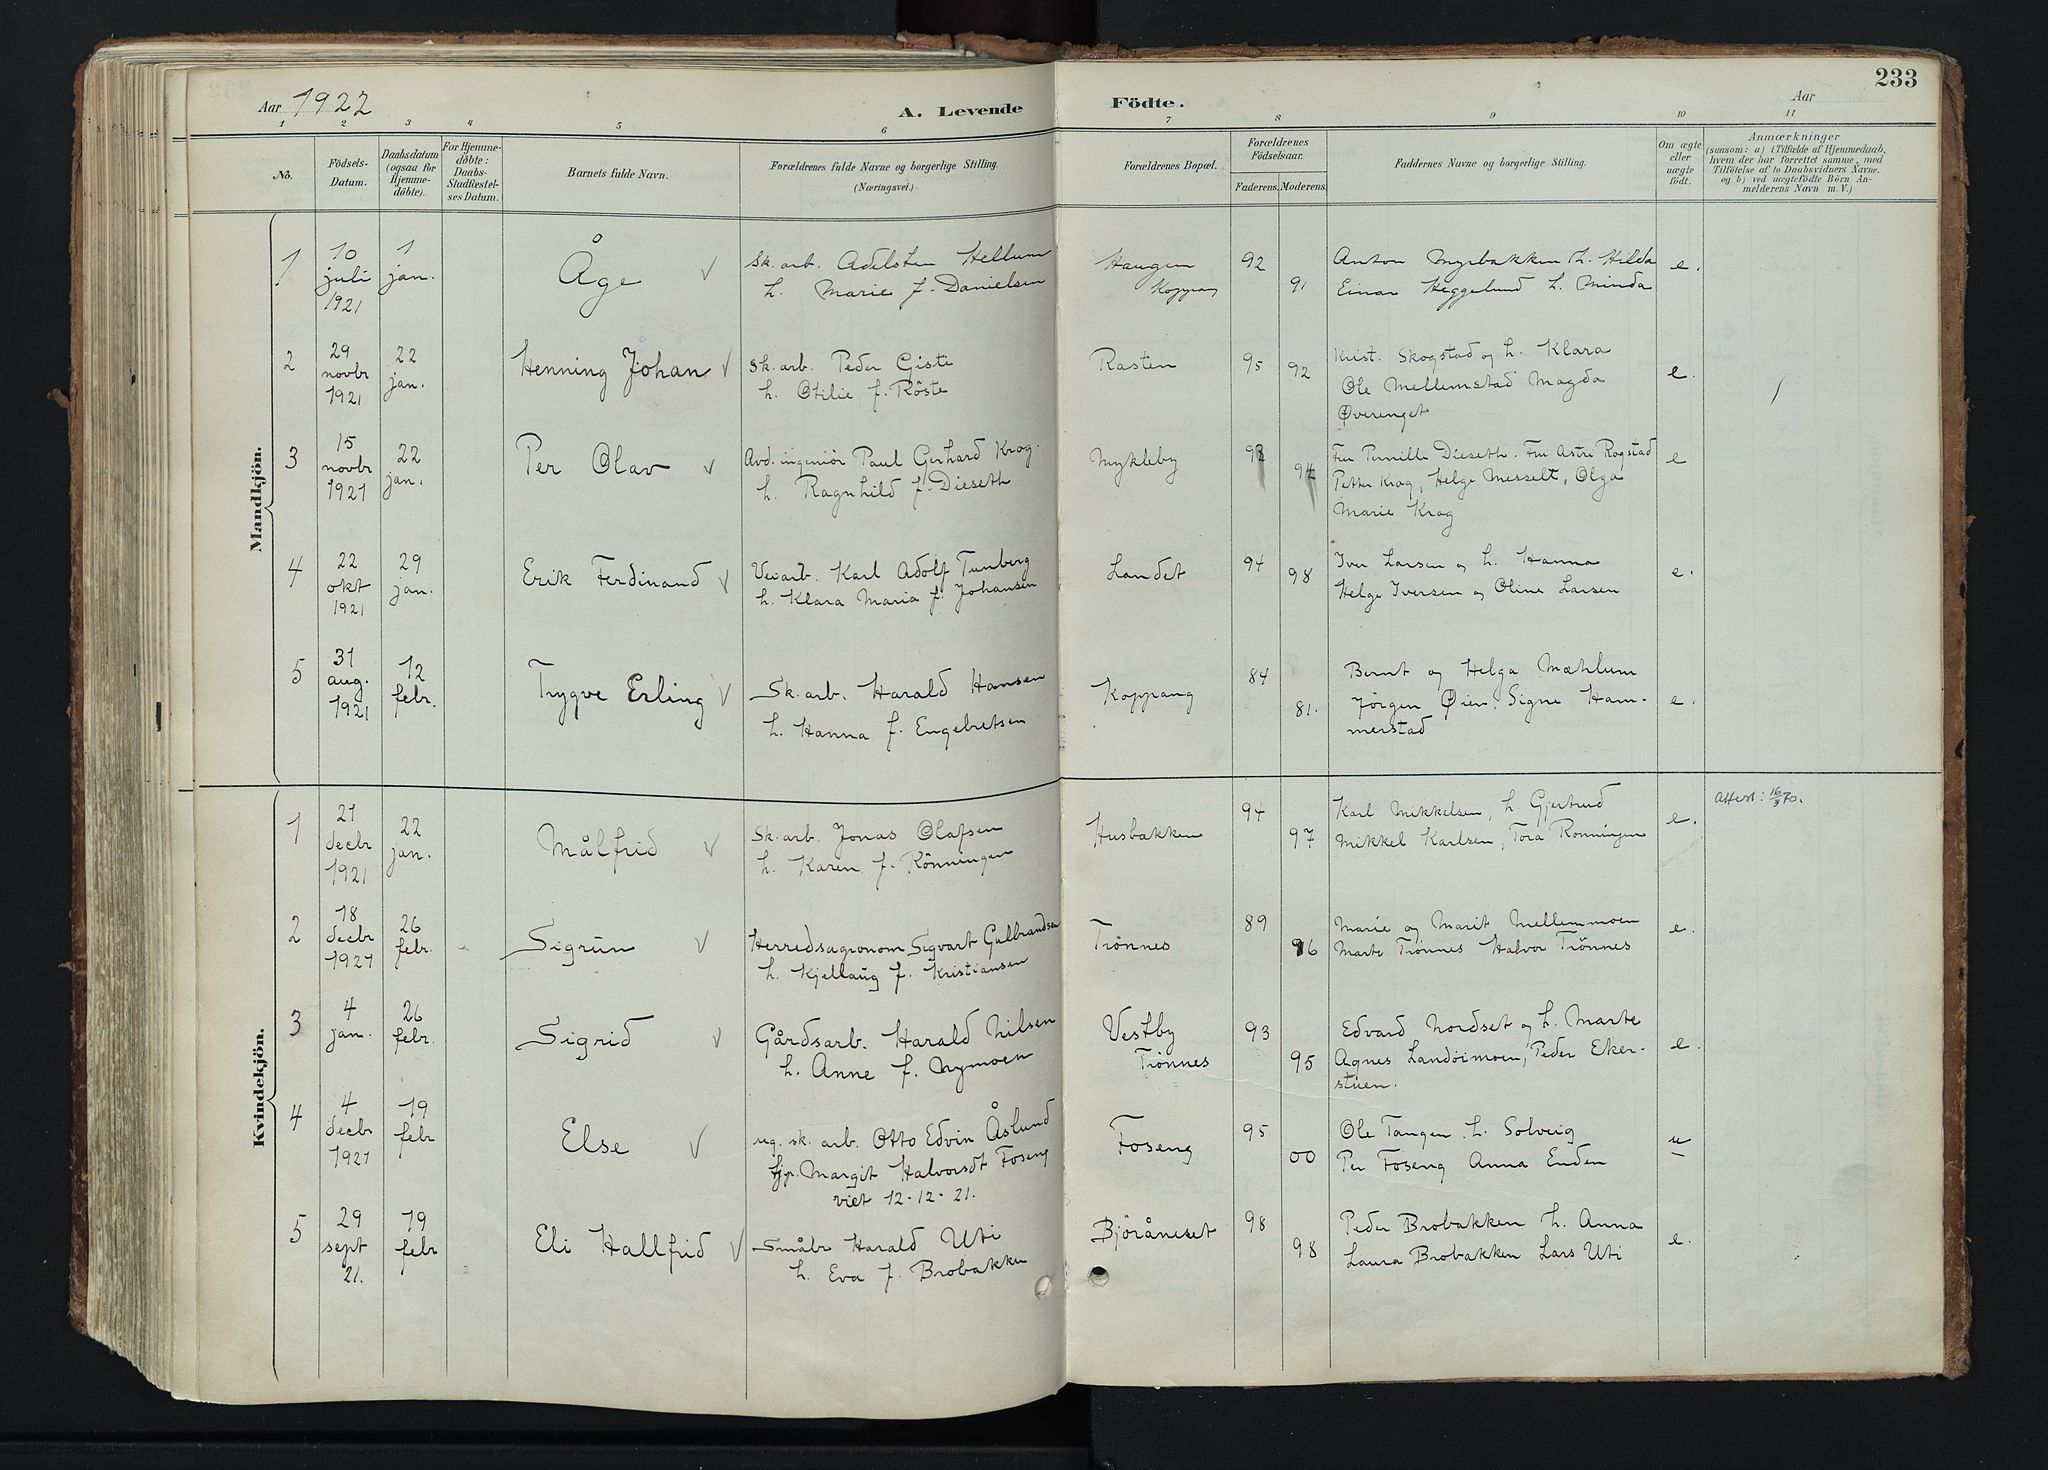 233
Aar 1922
A. Levende
Födte.
Aar
1 2 3 4 5 6 7 8 9 10 11
No.
Födsels-Datum.
Daabsdatum (ogsaa for Hjemme-döbte).
For Hjemme-döbte: Daabs-Stadfæstel-ses Datum.
Barnets fulde Navn.
Forældrenes fulde Navne og borgerlige Stilling. (Næringsvei.)
Forældrenes Bopæl.
Forældrenes Födselsaar.
Faderens. Moderens.
Faddernes Navne og borgerlige Stilling.
Om ægte eller uægte födt.
Anmærkninger
(saasom: a) i Tilfælde af Hjemmedaab, hvem der har forrettet samme, med Tilföielse af to Daabsvidners Navne, og b) ved uægtefödte Börn An-melderens Navn m. V.)
Mandkjön.
1 10 juli 1921 1 jan. Åge
Sk. arb. Adelsten Hellum
h. Marie f. Danielsen
Haugen
Koppang
92 91
Anton Myrbakken h. Hilda
Einar Heggelund h. Minda
e.
2 29 novbr 1921 22 jan. Henning Johan
Sk. arb. Peder Giste
h. Otilie f. Röste
Rasten
95 92
Krist. Skogstad og h. Klara
Ole Mellemstad Magda
Øverenget
e.
3 15 novbr 1921 22 jan. Per Olav
Avd. ingeniör Paul Gerhard Krog
h. Ragnhild f. Dieseth
Mykleby
94
Fru Pernille Dieseth. Fru Astri Rogstad
Petter Krog, Helge Messelt, Olga
Marie Krog
e
4 22 okt 1921 29 jan. Erik Ferdinand
Veiarb. Karl Adolf Tunberg
h. Klara Maria f. Johansen
Landet
94 98
Iver Larsen og h. Hanna
Helge Iversen og Oline Larsen
e.
5 31 aug. 1921 12 febr. Trygve Erling
Sk. arb. Harald Hansen
h. Hanna f. Engebretsen
Koppang
84 81.
Bernt og Helga Mæhlum
Jørgen Øien. Signe Ham-
merstad
e.
Kvindekjön.
1 21 decbr 1921 22 jan. Målfrid
Sk. arb. Jonas Olafsen
h. Karen f. Rönningen
Husbakken
94 97
Karl Mikkelsen, h. Gjertrud
Mikkel Karlsen, Tora Ronningen
e.
Attest: 16/3 70.
2 18 decbr 1921 26 febr. Sigrun
Herredsagronom Sigvart Gulbrandsen
h. Kjellaug f. Kristiansen
Trönnes
89 96
Marie og Marit Mellemmoen
Marte Trönnes Halvor Trönnes
e.
3 4 jan. 26 febr. Sigrid
Gårdsarb. Harald Nilsen
h. Anne f. Nymoen
Vestby
Trönnes
93 95
Edvard Nordset og h. Marte
Agnes Landöimoen, Peder Eker-
stuen.
e.
4 4 decbr 1921 19 febr Else
ug. sk. arb. Otto Edvin Åslund
Margit Halvorsdt Foseng
viet 12-12-21.
Foseng
95 00
Ole Tangen. h. Solveig
Per Foseng Anna Enden
u
5 29 sept 21. 19 febr Eli Hallfrid
Småbr Harald Uti
h. Eva f. Brobakken
Björåneset
98 98
Peder Brobakken h. Anna
Laura Brobakken Lars Uti
e.